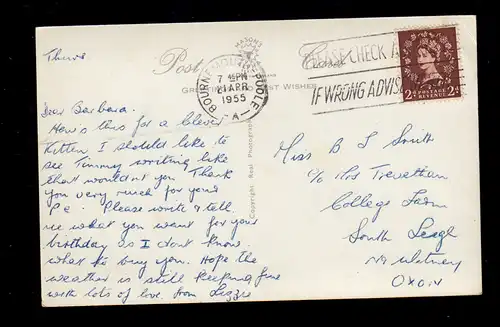 Thurs
Post Card
MASON'S
GREETINGS BEST WISHES
BOURNEMOUTH POOLE
7 45PM
21 APR
1955
A
PLEASE CHECK A
IF WRONG ADVISE
POSTAGE
REVENUE
2D 2D
Dear Barbara.
How's this for a clever
Kitten I should like to
see Timmy writing like
that wouldn't you Thank
you very much for your
P.c. Please write & tell
me what you want for your
birthday as I don't know
what to buy you. Hope the
weather is still keeping fine
with lots of love from Lizzie
Copyright Real Photograph
Miss B J Smith
c/o Mrs Trevethan
College Farm
South Leigh
Nr Witney
OXON